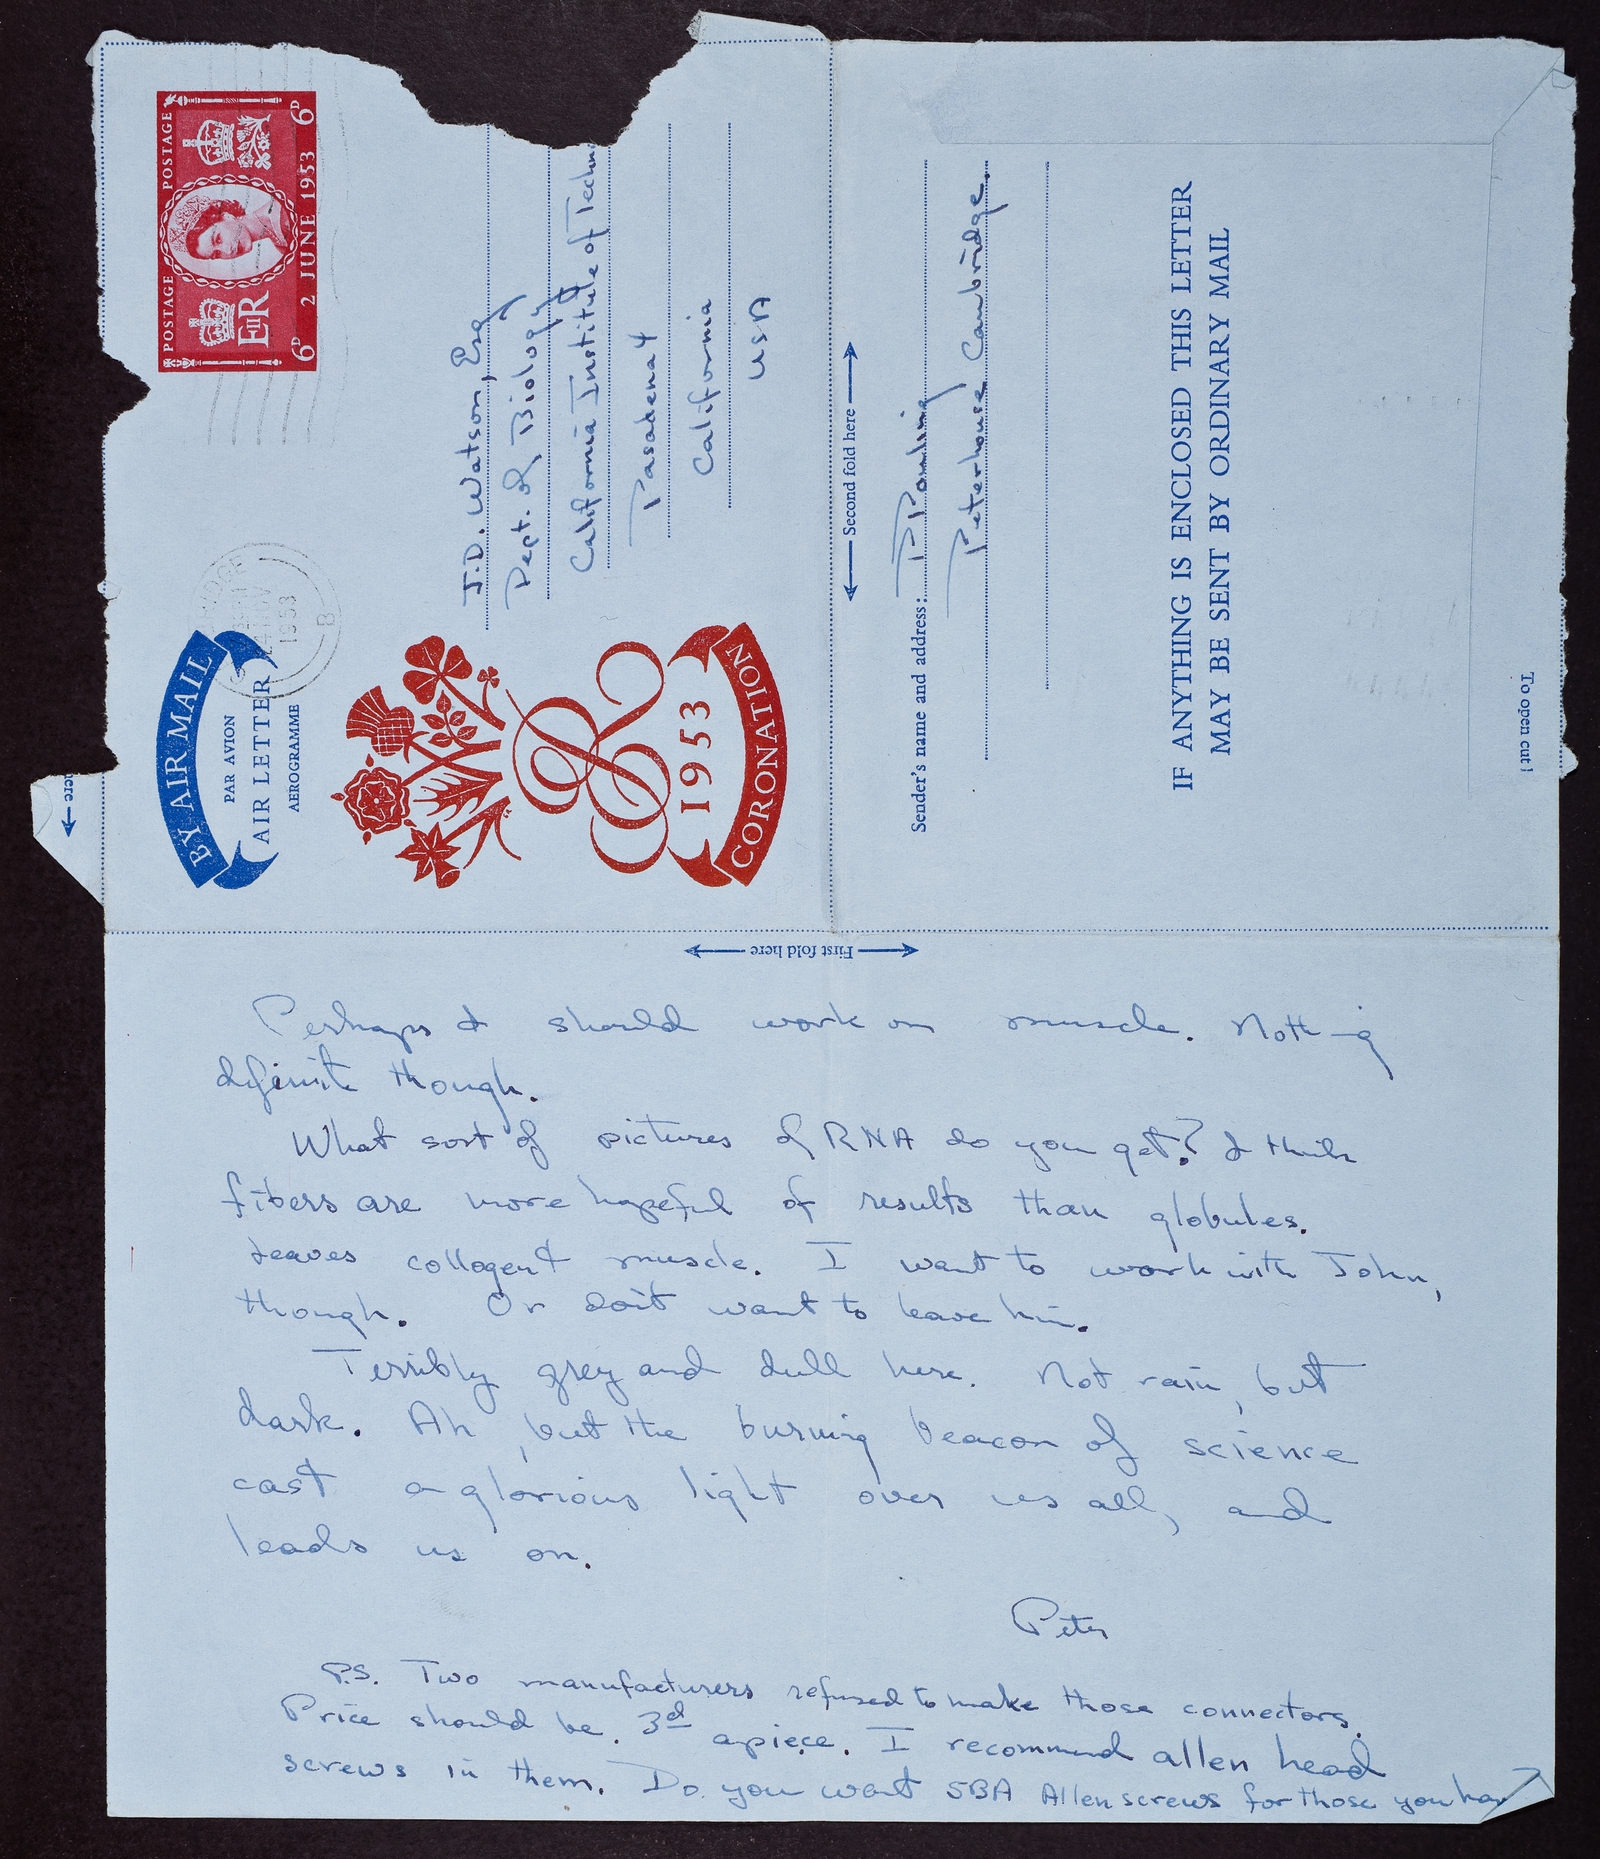 POSTAGE POSTAGE
E II R
6D 2 JUNE 1953 6D
1953
B
BY AIR MAIL
PAR AVION
AIR LETTER
AEROGRAMME
1953
CORONATION
J.D. Watson, Esq
Dept. of Biology
California Institute of Techn
Pasadena 4
California
USA
here
Second fold here
Sender's name and address: P Pauling
Peterhouse Cambridge.
IF ANYTHING IS ENCLOSED THIS LETTER
MAY BE SENT BY ORDINARY MAIL
To open cut
First fold here
Perhaps I should work on muscle. Nothing
definite though.
What sort of pictures of RNA do you get? I think
fibers are more hopeful of results than globules.
Leaves collagen & muscle. I want to work with John,
though. Or don't want to leave him.
Terribly grey and dull here. Not rain, but
dark. Ah, but the burning beacon of science
cast a glorious light over us all, and
leads us on.
Peter
P.S. Two manufacturers refused to make those connectors.
Price should be 3d apiece. I recommend allen head
screws in them. Do you want 5BA Allen screws for those you hav